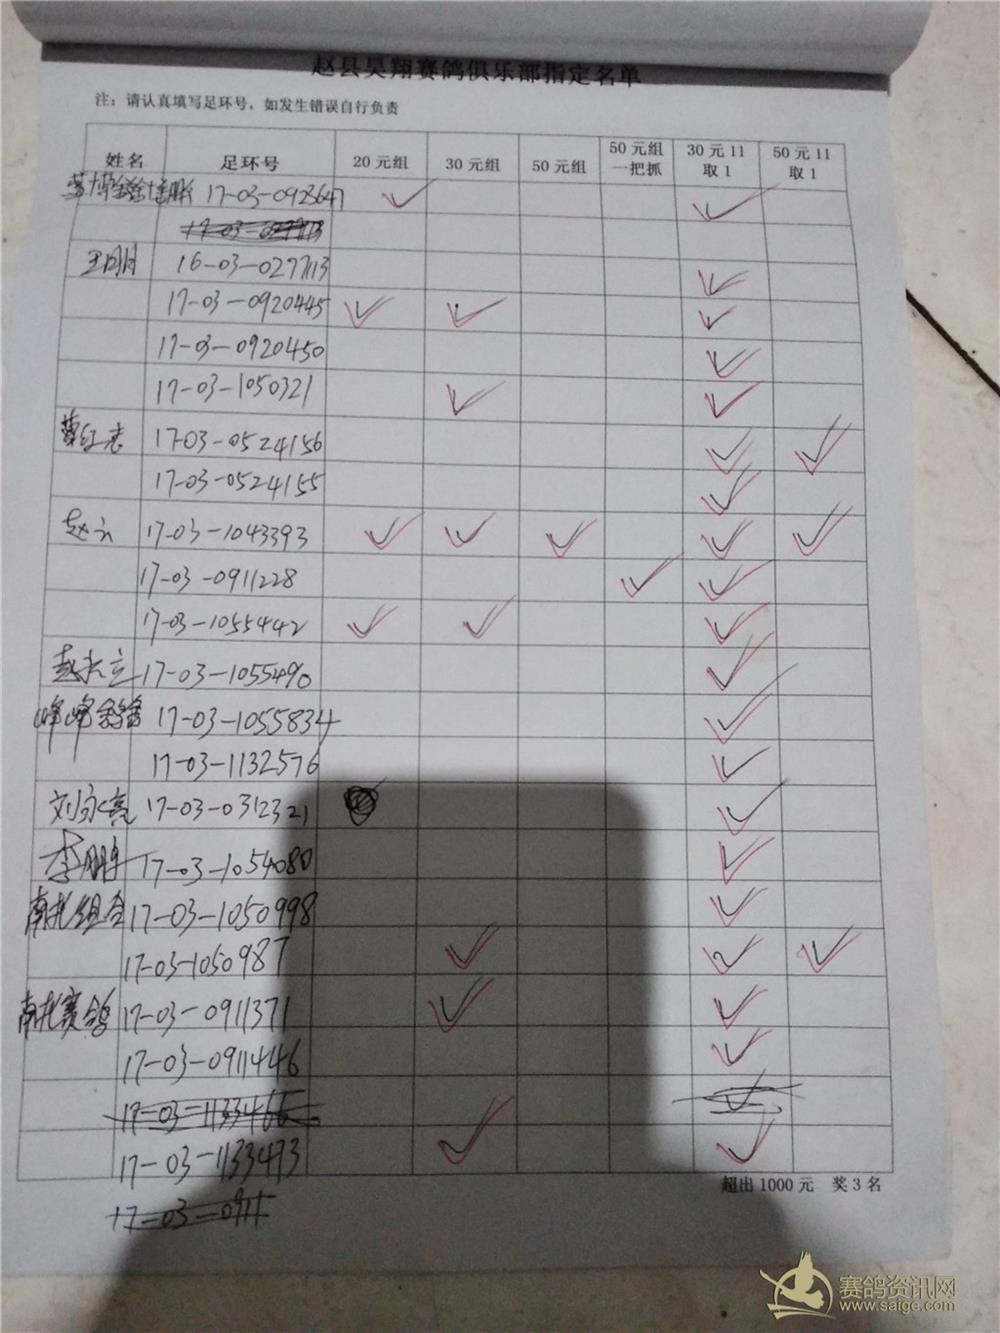 赵县昊翔赛鸽俱乐部指定名单
注：请认真填写足环号，如发生错误自行负责
姓名 足环号 20元组 30元组 50元组 50元组一把抓 30元11取1 50元11取1
17-03-0923647 ✓ ✓
16-03-027713 ✓
17-03-0920445 ✓ ✓ ✓
17-03-0920450 ✓
17-03-1050321 ✓ ✓
17-03-0524156 ✓ ✓
17-03-0524155 ✓
17-03-1043393 ✓ ✓ ✓ ✓ ✓
17-03-0911228 ✓ ✓
17-03-1055442 ✓ ✓ ✓
17-03-1055490 ✓
峰峰 17-03-1055834 ✓
17-03-1132576 ✓
刘永亮 17-03-0312321 ✓
李鹏 17-03-1054080 ✓
南托组合 17-03-1050998 ✓
17-03-1050987 ✓ ✓ ✓
南托赛鸽 17-03-0911371 ✓ ✓
17-03-0911446 ✓
17-03-1133466 ✓
17-03-1133473 ✓ ✓
超出1000元 奖3名
17-03-0911
赛鸽资讯网
www.saige.com